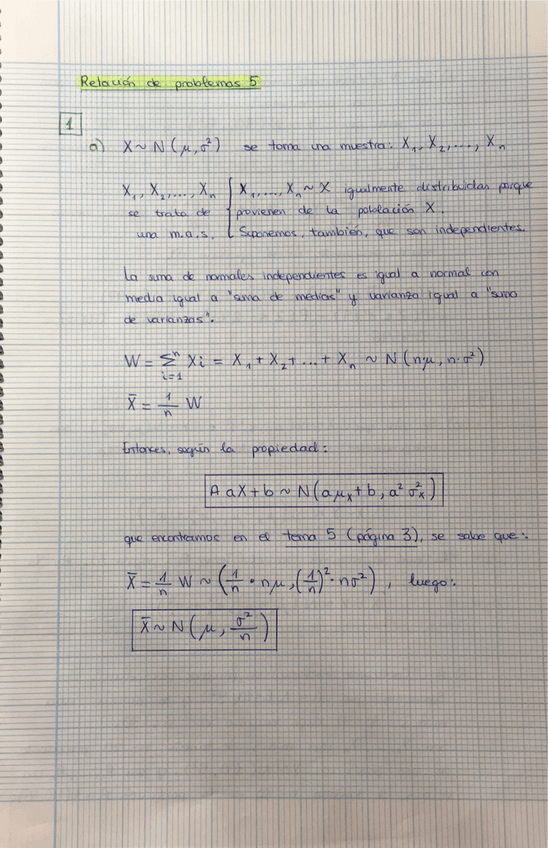 Relación de problemas 5
1
a) X ~ N(μ, σ²) se toma una muestra: X₁, X₂, ..., Xₙ
X₁, X₂, ..., Xₙ { X₁, ..., Xₙ ~ X igualmente distribuidas porque
se trata de provienen de la población X.
una m.a.s. Suponemos, también, que son independientes.
La suma de normales independientes es igual a normal con
media igual a "suma de medias" y varianza igual a "suma
de varianzas".
W = Σⁿᵢ₌₁ Xi = X₁ + X₂ + ... + Xₙ ~ N(n·μ, n·σ²)
X̄ = 1/n W
Entonces, según la propiedad:
A aX + b ~ N(aμₓ + b, a² σ²ₓ)
que encontramos en el tema 5 (página 3), se sabe que:
X̄ = 1/n W ~ (1/n · nμ, (1/n)² · nσ²), luego:
X̄ ~ N(μ, σ²/n)